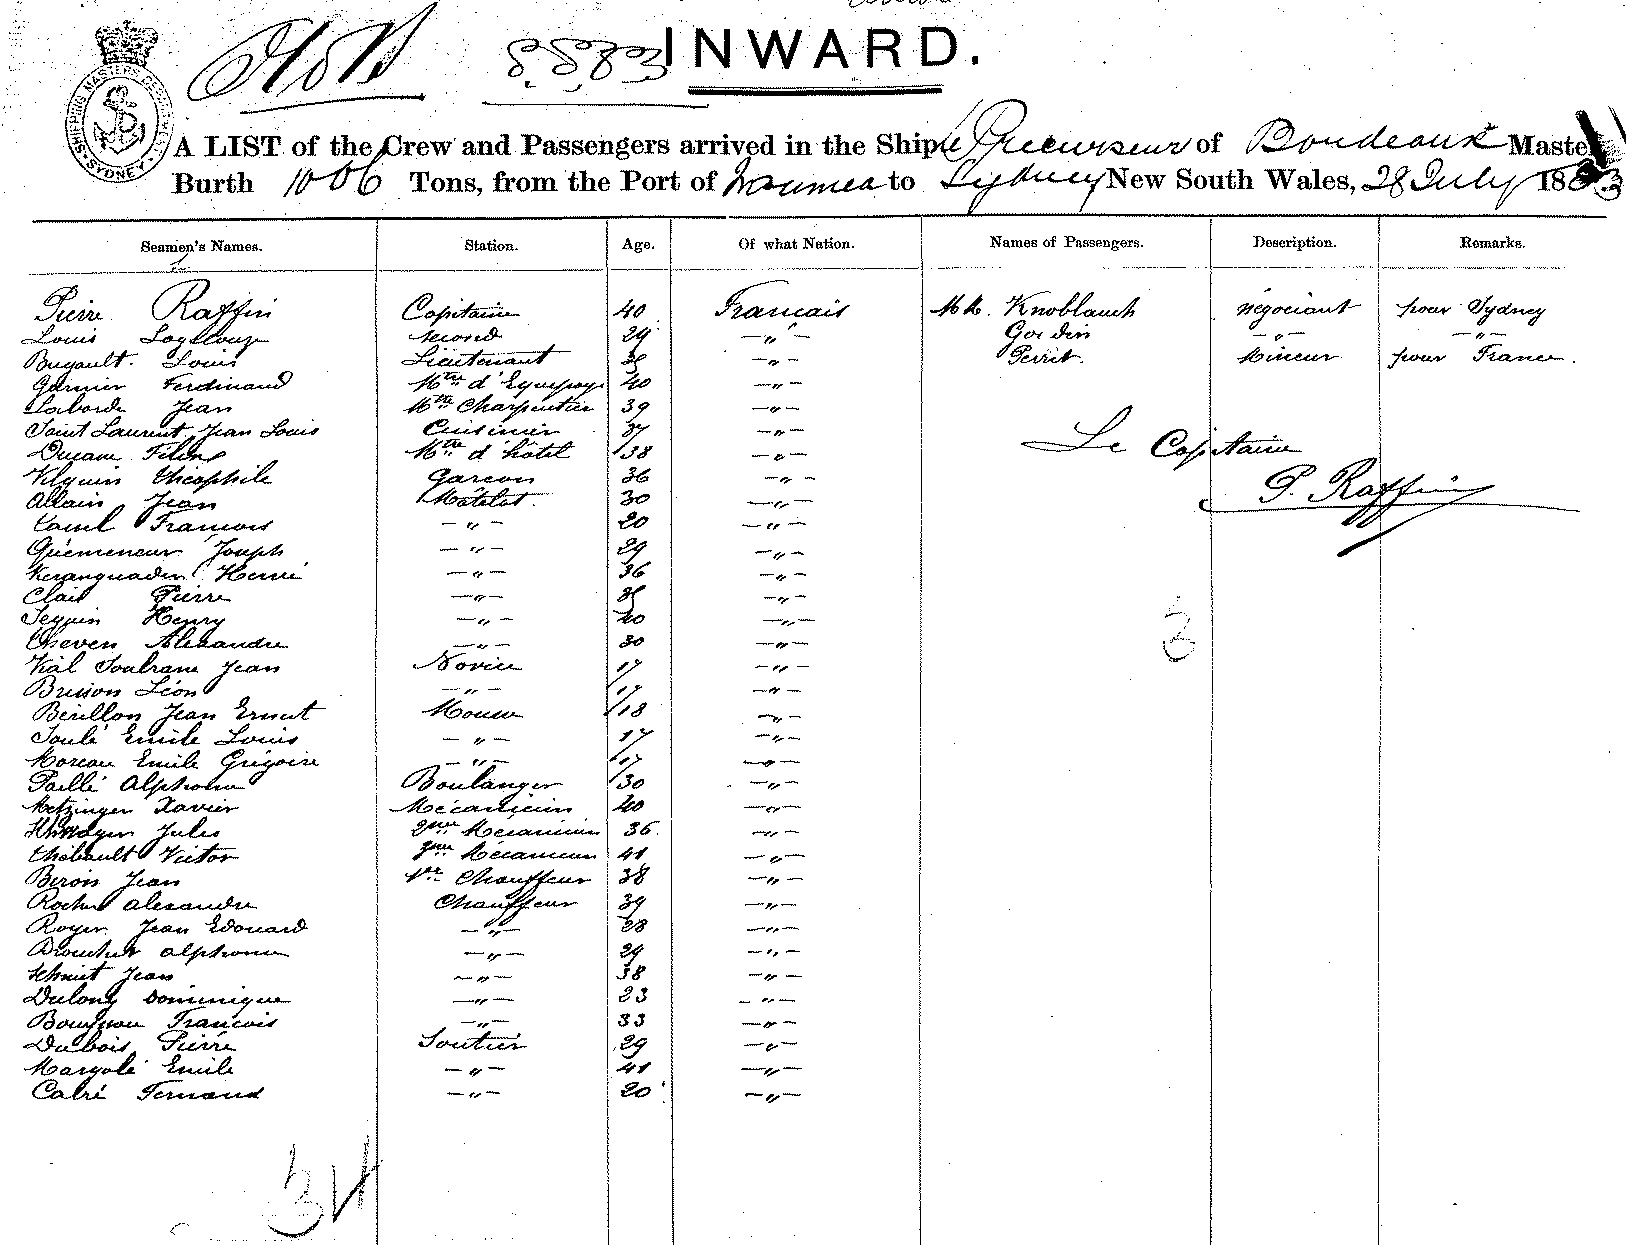 INWARD.
SHIPPING MASTERS OFFICE SYDNEY
A LIST of the Crew and Passengers arrived in the Ship Précurseur of Bordeaux Master
Burth 1006 Tons, from the Port of Noumea to Sydney New South Wales, 28 July 1883
Seamen's Names. Station. Age. Of what Nation. Names of Passengers. Description. Remarks.
Pierre Raffin Capitaine 40 Francais Mr. Knoblauch négociant pour Sydney
Louis second 29 — " — Gordin — " — — " —
Bugault Louis Lieutenant — " — Perrit Mineur pour France.
Garnier Ferdinand Mtre d'Equipage 40 — " —
Laborde Jean Mtre Charpentier 39 — " —
Saint Laurent Jean Louis Cuisinier 37 — " —
Ducam Mtre d'hôtel 38 — " —
Vilguin Théophile Garcon 36 — " —
Allain Jean Matelot. 30 — " —
Francois — " — 20 — " —
Quémeneur Joseph — " — 29 — " —
Keranguaden Henri — " — 36 — " —
Clair Pierre — " — — " —
Seguin Henry — " — 20 — " —
Cheven Alexandre — " — 30 — " —
Vial Soulrane Jean Novice 17 — " —
Buisson Léon — " — 17 — " —
Bérillon Jean Ernest Mousse 18 — " —
Soulé Emile Louis — " — 17 — " —
Moreau Emile Grégoire — " — 17 — " —
Paillé Alphonse Boulanger 30 — " —
Metzinger Xavier Mécanicien 40 — " —
Jules 2me Mécanicien 36. — " —
Thébault Victor 3me Mécanicien 41 — " —
Beron Jean 1er Chauffeur 38 — " —
Roche Alexandre Chauffeur 39 — " —
Royer Jean Edouard — " — 28 — " —
Alphonse — " — 29 — " —
Schmit Jean — " — 38 — " —
Dulong Dominique — " — 23 — " —
Francois — " — 33 — " —
Dubois Pierre Soutier 29 — " —
Margolé Emile — " — 41 — " —
Calré Fernand — " — 20 — " —
Le Capitaine
P. Raffin
3
34